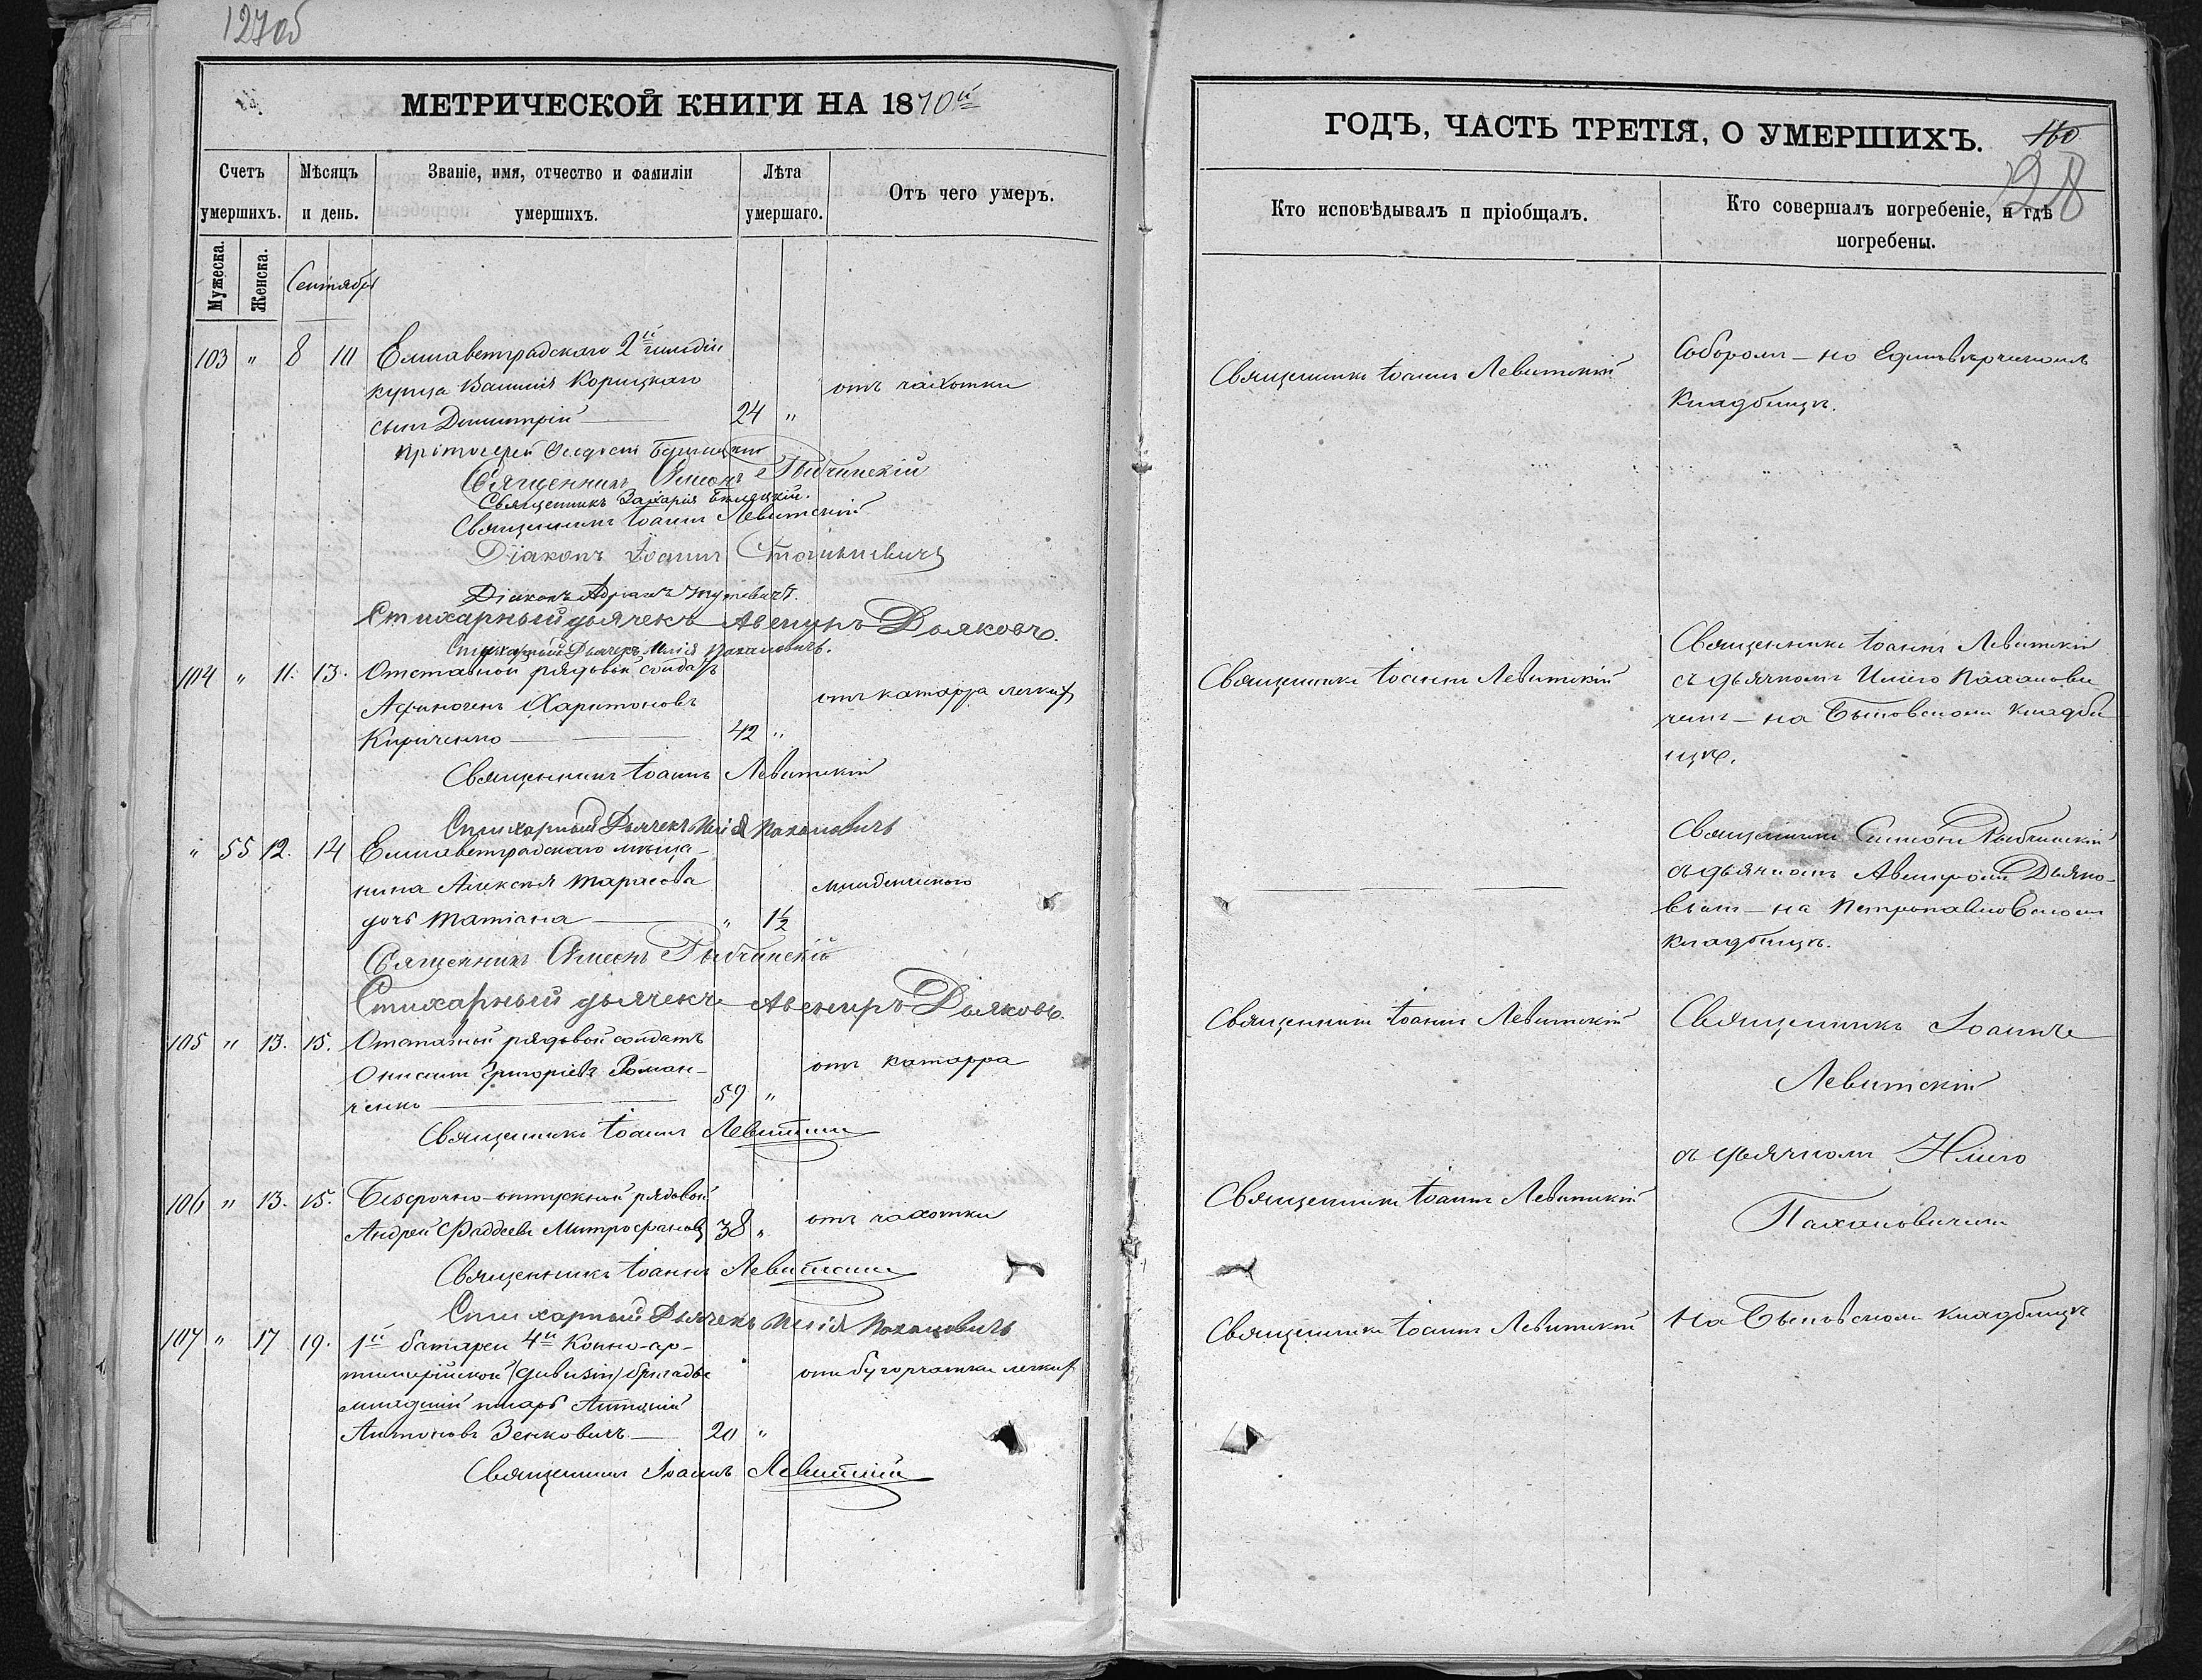 127об
МЕТРИЧЕСКОЙ КНИГИ НА 1870й
Счетъ умершихъ.
Мѣсяцъ и день.
Званіе, имя, отчество и фамиліи умершихъ.
Лѣта умершаго.
Отъ чего умеръ.
Мужеска.
Женска.
Сентябрь
103 " 8 10 Елисаветградскаго 2й гильдіи
купца Василія Корицкаго
отъ чахотки
сынъ Димитрій 24 "
протоіерей
Священникъ Симеонъ Рыбчинскій
Священникъ Захарія Бѣлецкій.
Священникъ Іоаннъ Левитскій
Діаконъ Іоаннъ
Діаконъ Адріанъ
Стихарный дьячекъ Авениръ Дьяковъ.
Стихарный Дьячекъ Илія Пахаловичъ.
104 " 11. 13. Отставной рядовой солдатъ
Афиногенъ Харитоновъ
отъ катарра легкихъ
Кириченко 42 "
Священникъ Іоаннъ Левитскій
Стихарный Дьячекъ Илія Пахаловичъ
" 55 12. 14 Елисаветградскаго мѣща-
нина Алексѣя Тарасова
младенческаго
дочь Татіана " 1½
Священникъ Симеонъ Рыбчинскій
Стихарный дьячекъ Авениръ Дьяковъ.
105 " 13. 15. Отставной рядовой солдатъ
Онисимъ Григоріевъ Роман-
отъ катарра
ченко 59 "
Священникъ Іоаннъ Левитскій
106 " 13. 15. Безсрочно-отпускный рядовой
Андрей Фаддеевъ Митрофановъ 38 "
отъ чахотки
Священникъ Іоаннъ Левитскій
Стихарный Дьячекъ Илія Пахаловичъ
107 " 17 19. 1й батареи 4й Конно-ар-
тиллерійской (дивизіи) бригады
отъ бугорчатки легкихъ
младшій писарь Антоній
Антоновъ Зенковичъ 20 "
Священникъ Іоаннъ Левитскій
ГОДЪ, ЧАСТЬ ТРЕТІЯ, О УМЕРШИХЪ.
128
Кто исповѣдывалъ и пріобщалъ.
Кто совершалъ погребеніе, и гдѣ погребены.
Священникъ Іоаннъ Левитскій
Соборомъ – на Единовѣрческомъ
Кладбищѣ.
Священникъ Іоаннъ Левитскій
Священникъ Іоаннъ Левитскій
съ дьячкомъ Иліею Пахалови-
чемъ – на Быковскомъ кладби-
щѣ.
Священникъ Симеонъ Рыбчинскій
съ дьячкомъ Авениромъ Дьяко-
вымъ – на Петропавловскомъ
кладбищѣ.
Священникъ Іоаннъ Левитскій
Священникъ Іоаннъ
Левитскій
съ дьячкомъ Иліею
Пахаловичемъ
Священникъ Іоаннъ Левитскій
Священникъ Іоаннъ Левитскій
На Быковскомъ кладбищѣ